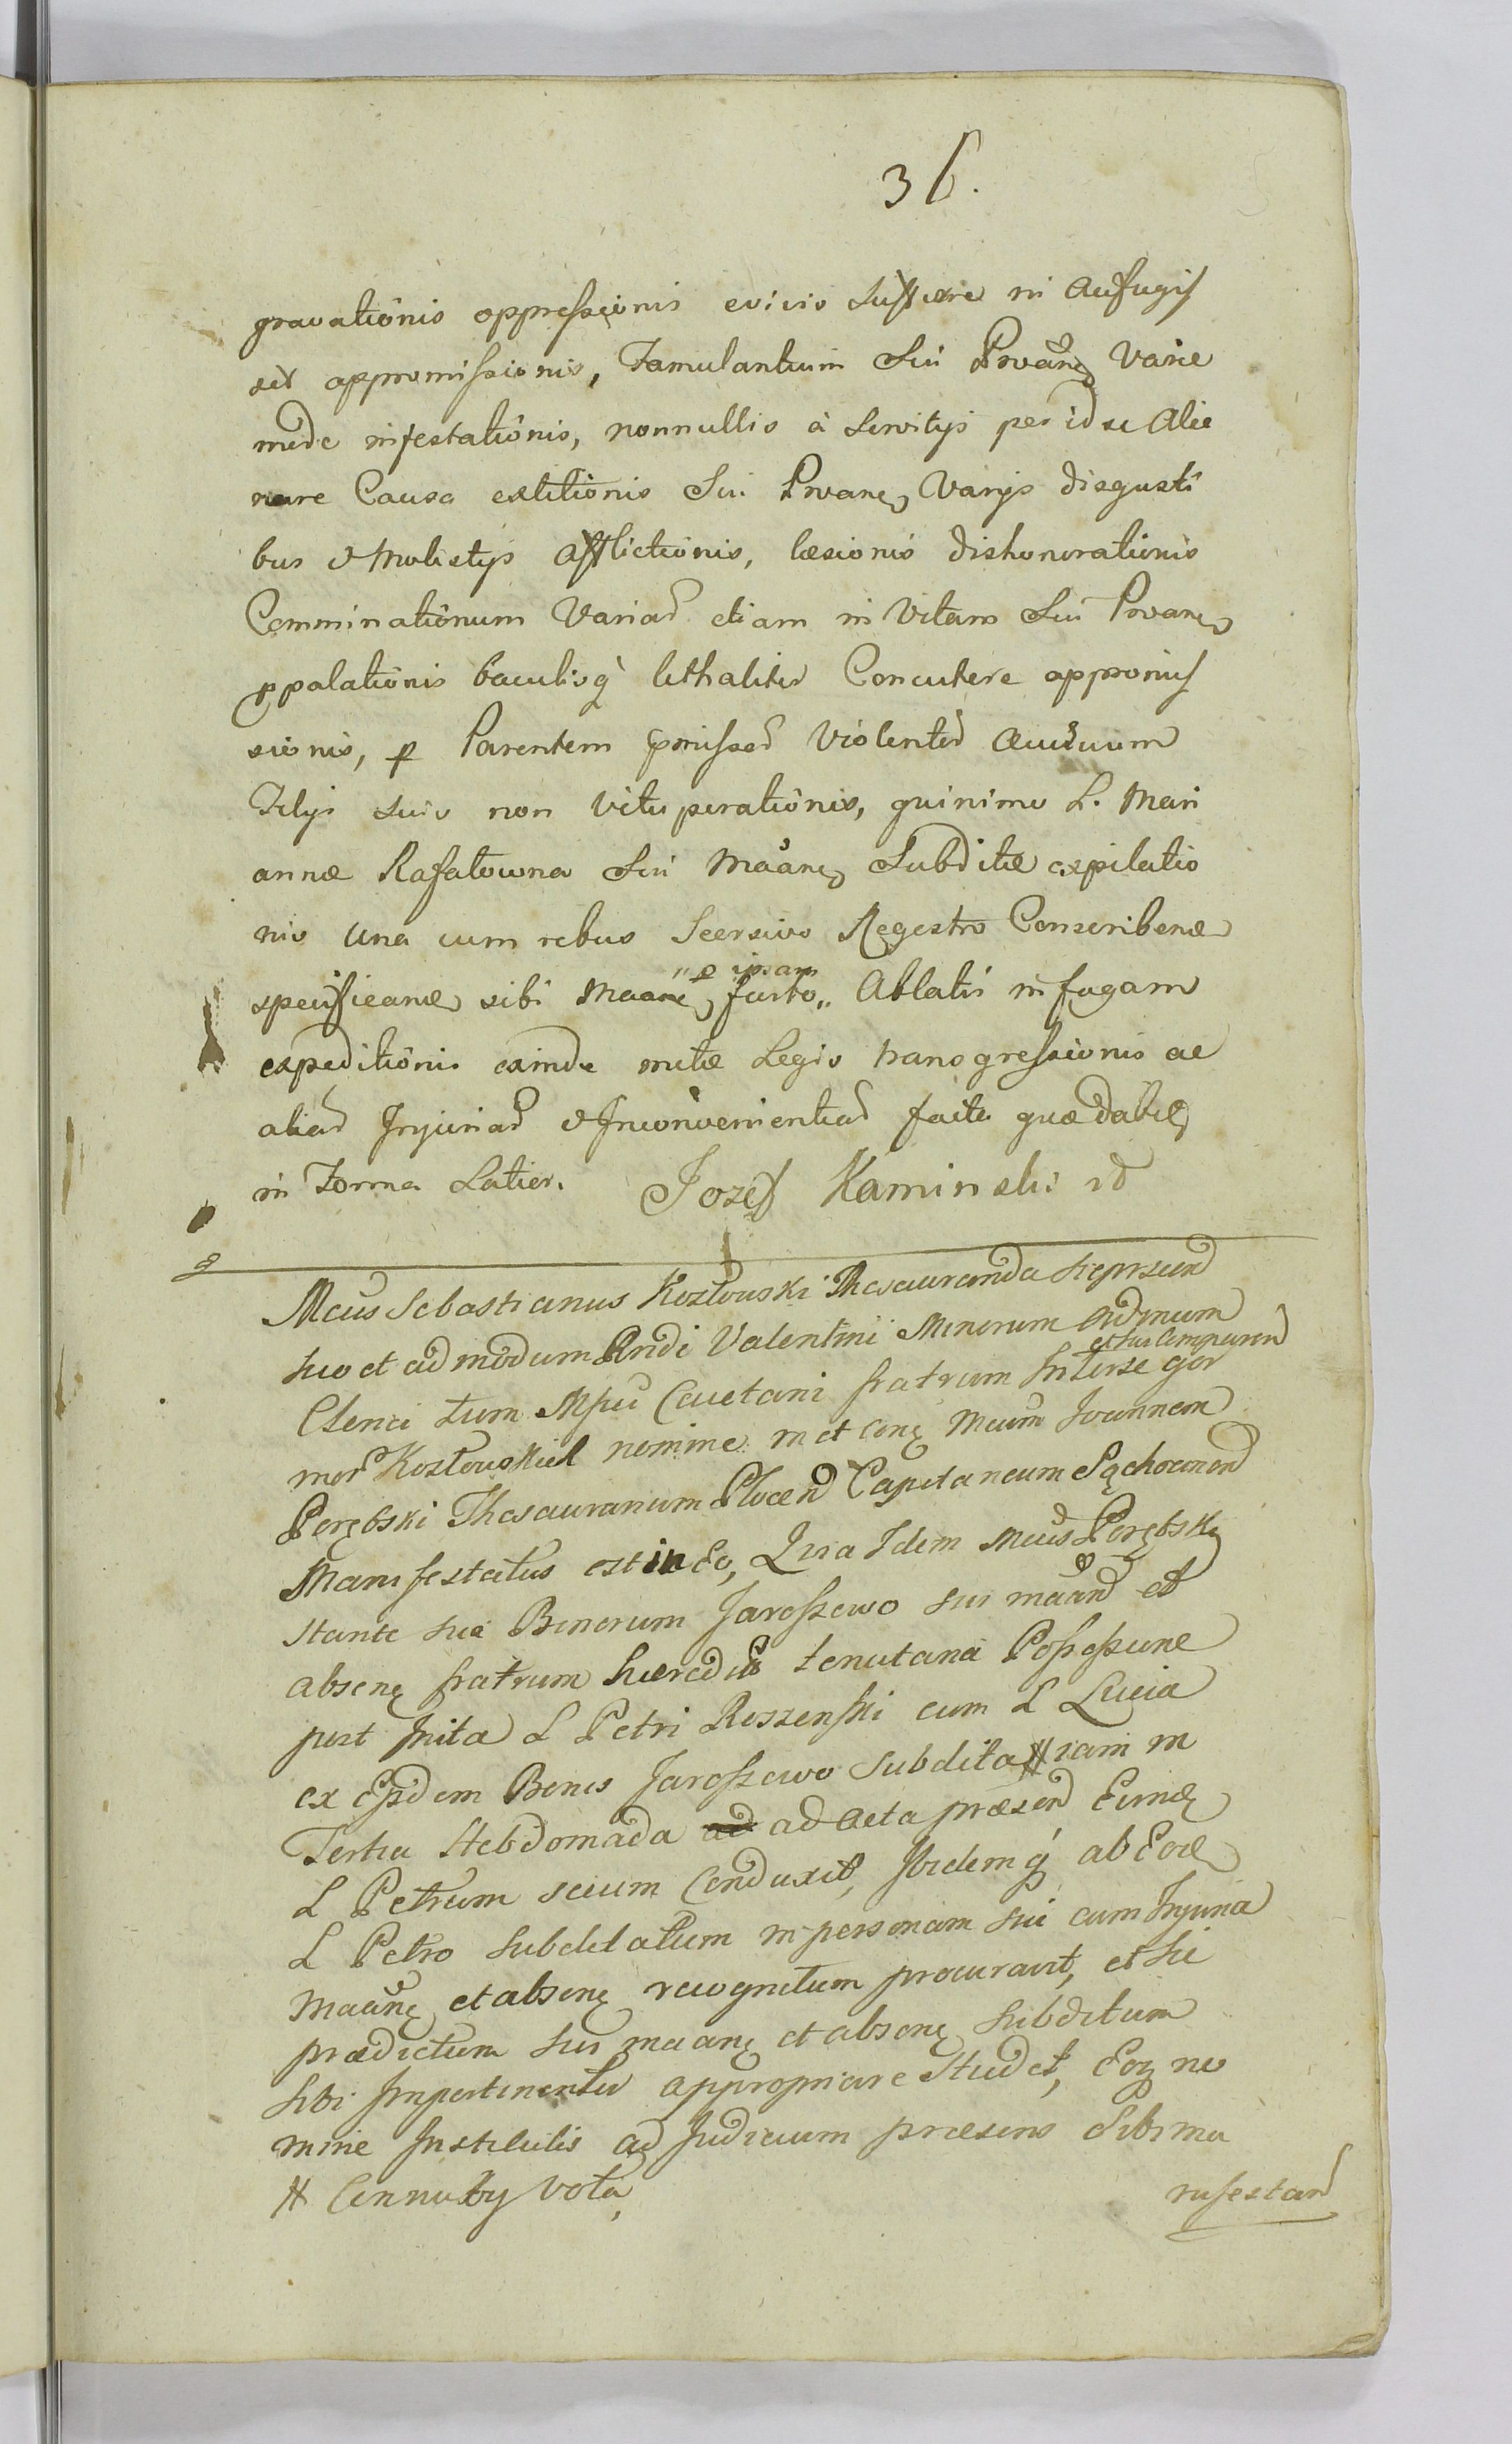 36.
gravationis oppressionis evicio in aufugij
sei appromissionis, Famulantium Sui Prvane Varie
mode infestationis, nonnullis à Servitys per id se Alie
nare Causa extitionis Sui Prvane, Varijs disgusti
bus & Molestijs afflictionis, læsionis dishonorationis
Comminationum Variar etiam in Vitam Sui Prvane,
ppalationis baculisq lethaliter Concutere appromis
sionis, p Parentem pmissor Violenter
Filys suis non Vituperationis, quinimo L. Mari
annæ Rafałowna Sui Maane, Subditæ expilatio
nis una cum rebus Seorsivo Regestro Conscribenæ
specificanæ, sibi Maane, furto „ p ipsam „ Ablatis in fugam
expeditionis exinde metæ Legis transgressionis ac
aliar Injuriar & Inconvenientiar facta quæ dabile
in Forma Latior. Jozef Kaminski id
Mcus Sebastianus Kozłowski Thesauranida
suo et ad modum Rndi Valentini Minorum Ordinum
Clerici tum Mfici Caietani fratrum Interse ger et sua Comparend
mor Kozłowskich nomine m et conę Mcum Joannem
Porębski Thesaurarium Plocen Capitaneum Sąchocinen
Manifestatus est in Eo, Quia Idem Mcus Porębski
stante sua Bonorum Jaroszewo sui maan et
absenę fratrum hæredum tenutaria Possessione
post Inita L Petri Roszenski cum L Lucia
ex Eisdem Bonis Jaroszewo Subdita # iam in
Tertia Hebdomada ad ad Acta præsen Eund
L Petrum secum Conduxit, Ibidemq ab Eod
L Petro Subditatum in personam sui cum Injuria
Maanę et absenę recognitum procuravit, et sic
prædictum sui maanę et absenę Subditum
sibi Impertinenter appropriare Studet, Eoq no
mine Institutis ad Judicium præsens Sibi ma
# Connuby Vota,
nifestan